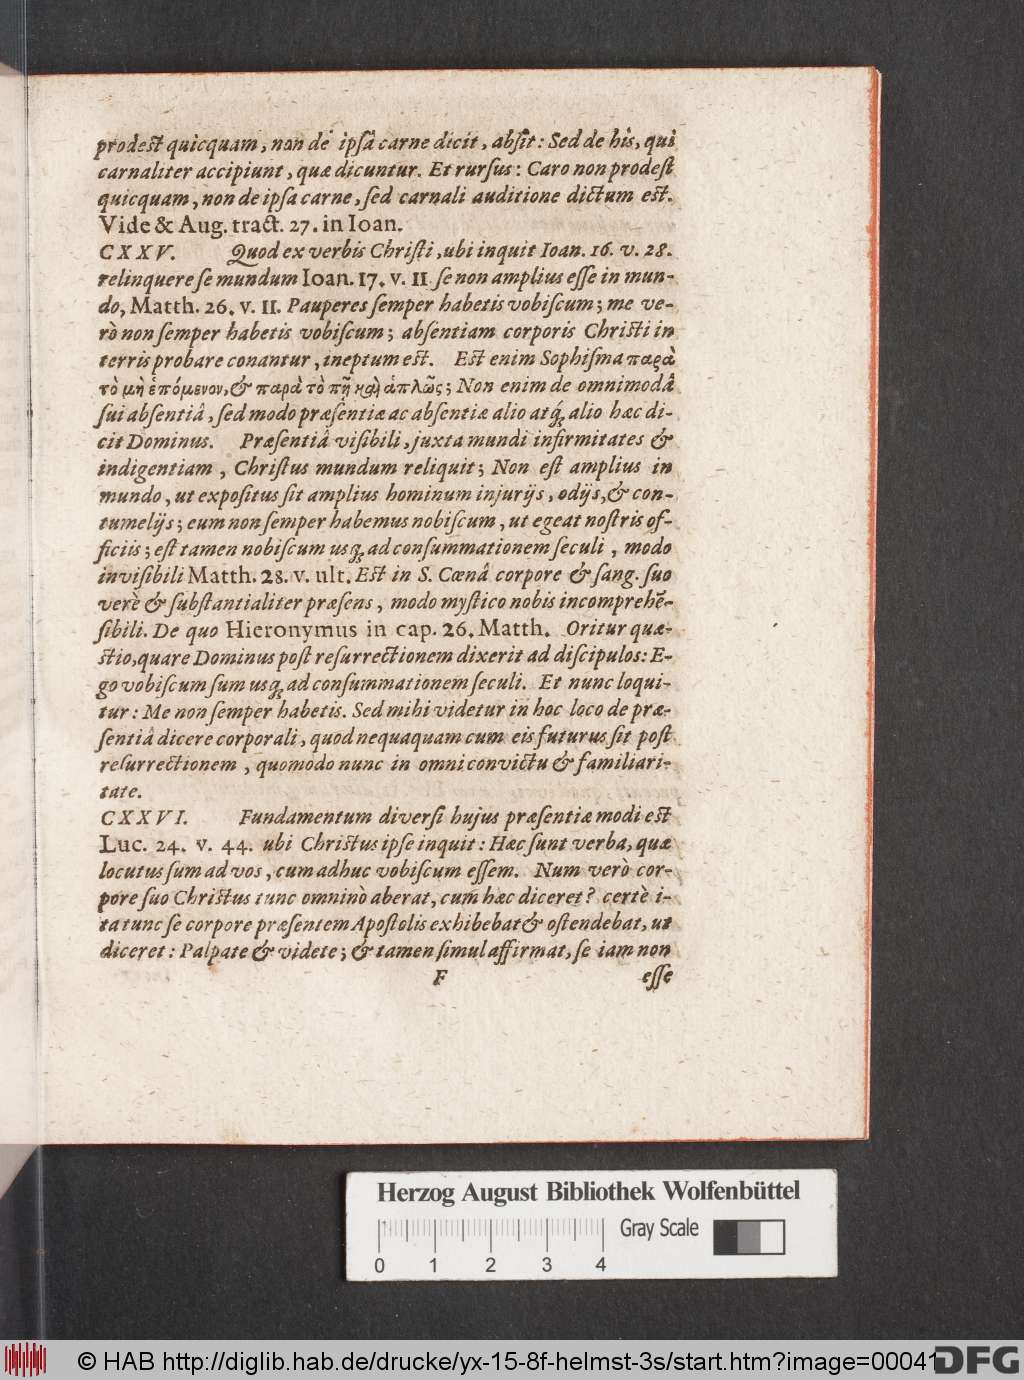 prodest quicquam, non de ipsâ carne dicit, absit: Sed de his, qui
carnaliter accipiunt, quæ dicuntur. Et rursus: Caro non prodest
quicquam, non de ipsa carne, sed carnali auditione dictum est.
Vide & Aug. tract. 27. in Ioan.
CXXV. Quod ex verbis Christi, ubi inquit Ioan. 16. v. 28.
relinquere se mundum Ioan. 17. v. 11 se non amplius esse in mun-
do, Matth. 26. v. 11. Pauperes semper habetis vobiscum; me ve-
rò non semper habetis vobiscum; absentiam corporis Christi in
terris probare conantur, ineptum est. Est enim Sophisma παρὰ
τὸ μὴ ἑπόμενον, & παρὰ τὸ πῆ καὶ ἁπλῶς; Non enim de omnimodâ
sui absentiâ, sed modo præsentiæ ac absentiæ alio atq; alio hæc di-
cit Dominus. Præsentiâ visibili, juxta mundi infirmitates &
indigentiam, Christus mundum reliquit; Non est amplius in
mundo, ut expositus sit amplius hominum injurijs, odijs, & con-
tumelijs; eum non semper habemus nobiscum, ut egeat nostris of-
ficiis; est tamen nobiscum usq; ad consummationem seculi, modo
invisibili Matth. 28. v. ult. Est in S. Cœnâ corpore & sang. suo
verè & substantialiter præsens, modo mystico nobis incomprehẽ-
sibili. De quo Hieronymus in cap. 26. Matth. Oritur quæ-
stio, quare Dominus post resurrectionem dixerit ad discipulos: E-
go vobiscum sum usq; ad consummationem seculi. Et nunc loqui-
tur: Me non semper habetis. Sed mihi videtur in hoc loco de præ-
sentiâ dicere corporali, quod nequaquam cum eis futurus sit post
resurrectionem, quomodo nunc in omni convictu & familiari-
tate.
CXXVI. Fundamentum diversi hujus præsentiæ modi est
Luc. 24. v. 44. ubi Christus ipse inquit: Hæc sunt verba, quæ
locutus sum ad vos, cum adhuc vobiscum essem. Num verò cor-
pore suo Christus tunc omninò aberat, cum hæc diceret? certè i-
ta tunc se corpore præsentem Apostolis exhibebat & ostendebat, ut
diceret: Palpate & videte; & tamen simul affirmat, se iam non
F esse
Herzog August Bibliothek Wolfenbüttel
Gray Scale
0 1 2 3 4
© HAB http://diglib.hab.de/drucke/yx-15-8f-helmst-3s/start.htm?image=00041
DFG